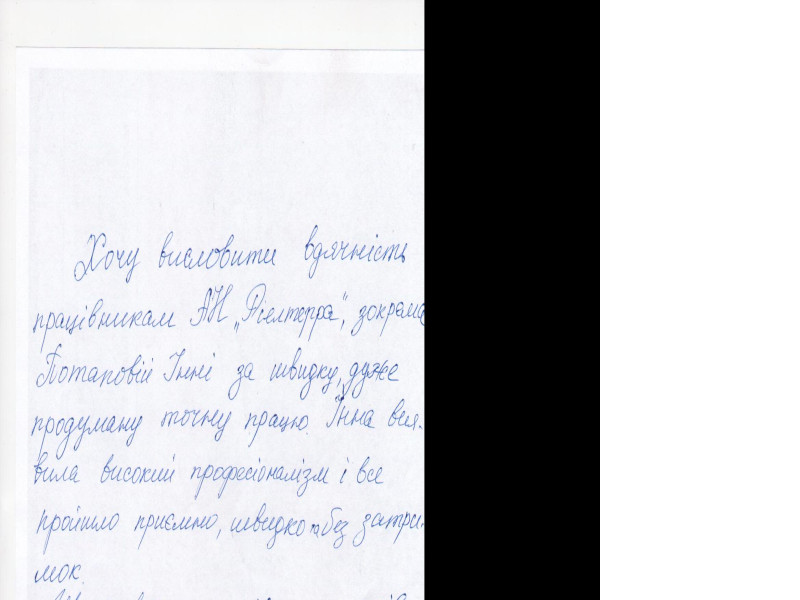 Хочу висловити вдячність
працівникам АН „Ріелтерра”, зокрема
Потаповій Інні за швидку, дуже
продуману точну працю. Інна вия-
вила високий професіоналізм і все
пройшло приємно, швидко та без затри-
мок.